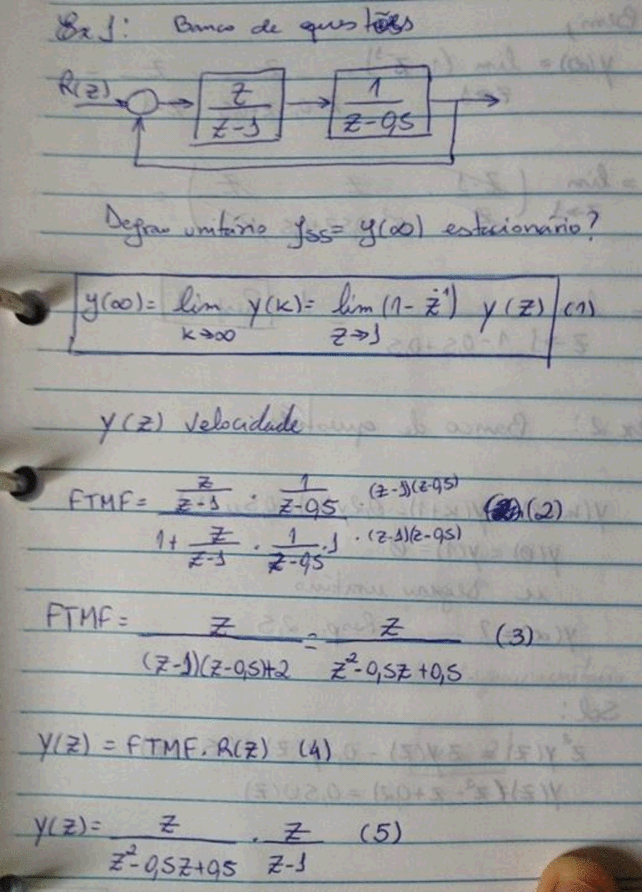 Ex 1: Banco de questões
R(z) z/(z-1) 1/(z-0,5)
Degrau unitário y_ss = y(∞) estacionário?
y(∞) = lim_{k→∞} y(k) = lim_{z→1} (1 - z^-1) y(z) (1)
y(z) velocidade
FTMF = (z/(z-1) · 1/(z-0,5)) / (1 + z/(z-1) · 1/(z-0,5) · 1) · (z-1)(z-0,5) / · (z-1)(z-0,5) (2)
FTMF = z/((z-1)(z-0,5)+z) = z/(z²-0,5z+0,5) (3)
y(z) = FTMF . R(z) (4)
y(z) = z/(z²-0,5z+0,5) · z/(z-1) (5)